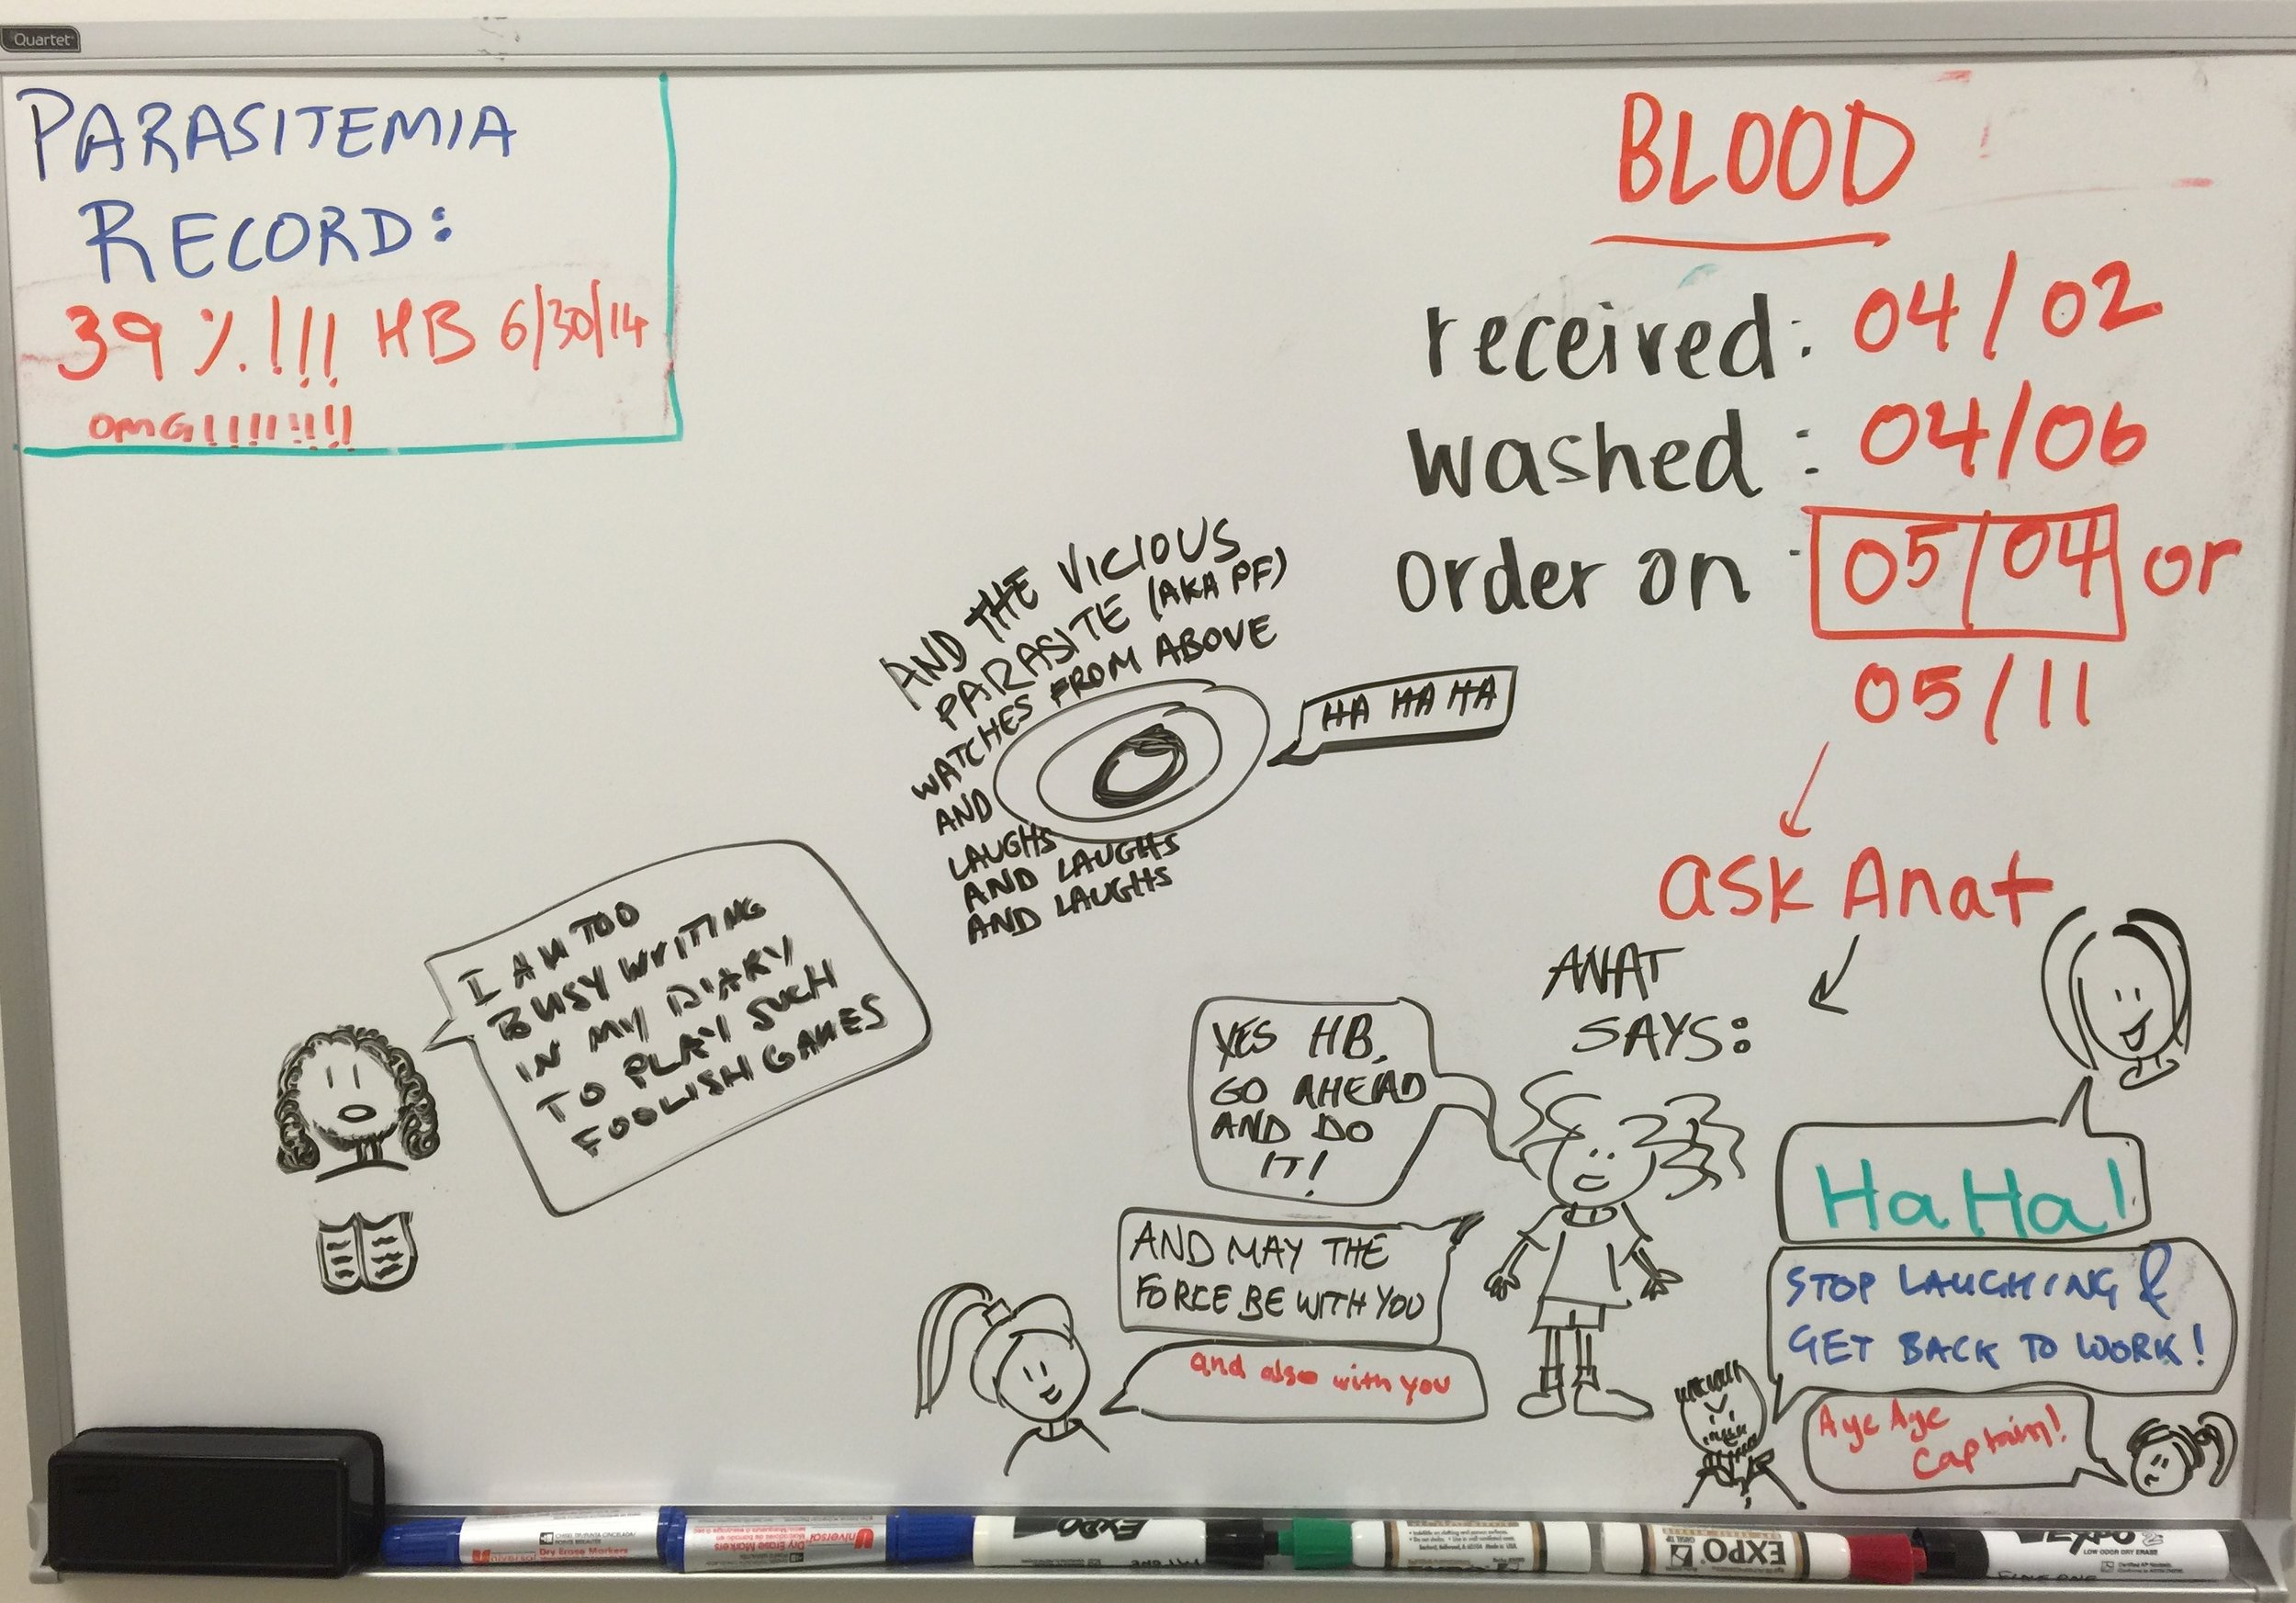 Quartet
PARASITEMIA
RECORD:
39%!!! HB 6/30/14
OMG!!!!!!!!
BLOOD
received: 04/02
washed: 04/06
order on: 05/04 or
05/11
ask Anat
AND THE VICIOUS
PARASITE (AKA PF)
WATCHES FROM ABOVE
AND
LAUGHS
AND LAUGHS
AND LAUGHS
HA HA HA
I AM TOO
BUSY WRITING
IN MY DIARY
TO PLAY SUCH
FOOLISH GAMES
ANAT
SAYS:
YES HB,
GO AHEAD
AND DO
IT!
AND MAY THE
FORCE BE WITH YOU
and also with you
Ha Ha!
STOP LAUGHING &
GET BACK TO WORK!
Aye Aye
Captain!
Universal
Dry Erase Markers
Universal
Dry Erase Markers
EXPO
EXPO
EXPO 2
LOW ODOR DRY ERASE